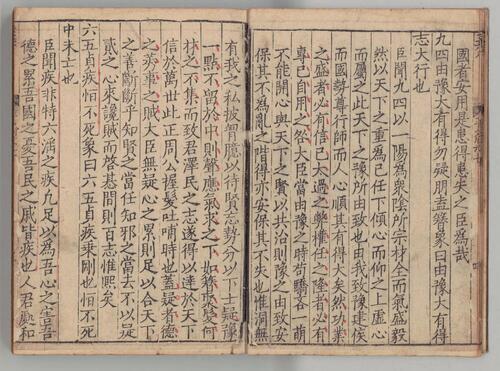 國者安用是患得患失之臣爲哉
九四由豫大有得勿疑朋盍簪象曰由豫大有得
志大行也
臣聞九四以一陽爲衆陰所宗材全而氣盛毅
然以天下之重爲己任下傾心而仰之上虛心
而屬之此天下之豫所由致也由我致豫建侯
而國勢尊行師而人心順其有得大矣然功業
之盛者必有信己太過之弊權任之隆者必有
專己自用之咎大臣當由豫之時苟驕吝一萌
不能開心與天下之賢以共治則豫之由致安
保其不爲亂之階得亦安保其不失也惟洞無
有我之私披胷臆以待賢忘勢分以下士疑
一點不留於中則聲應氣求之下如簪束髮何
材之不集而致君澤民之志遂得以達於天下
信於萬世此正周公握髮吐哺時也蓋疑者德
之事之賊大臣無疑心之累則足以合天下
之善斷斷乎知賢之當任知邪之當去不以是
貳之心來讒賊而啓羣間則百志惟熙矣
六五貞疾恒不死象曰六五貞疾乘剛也恒不死
中未亡也
臣聞疾非特六淫之疾凡足以爲吾心之害吾
德之累吾國之憂吾民之戚皆疾也人君處和